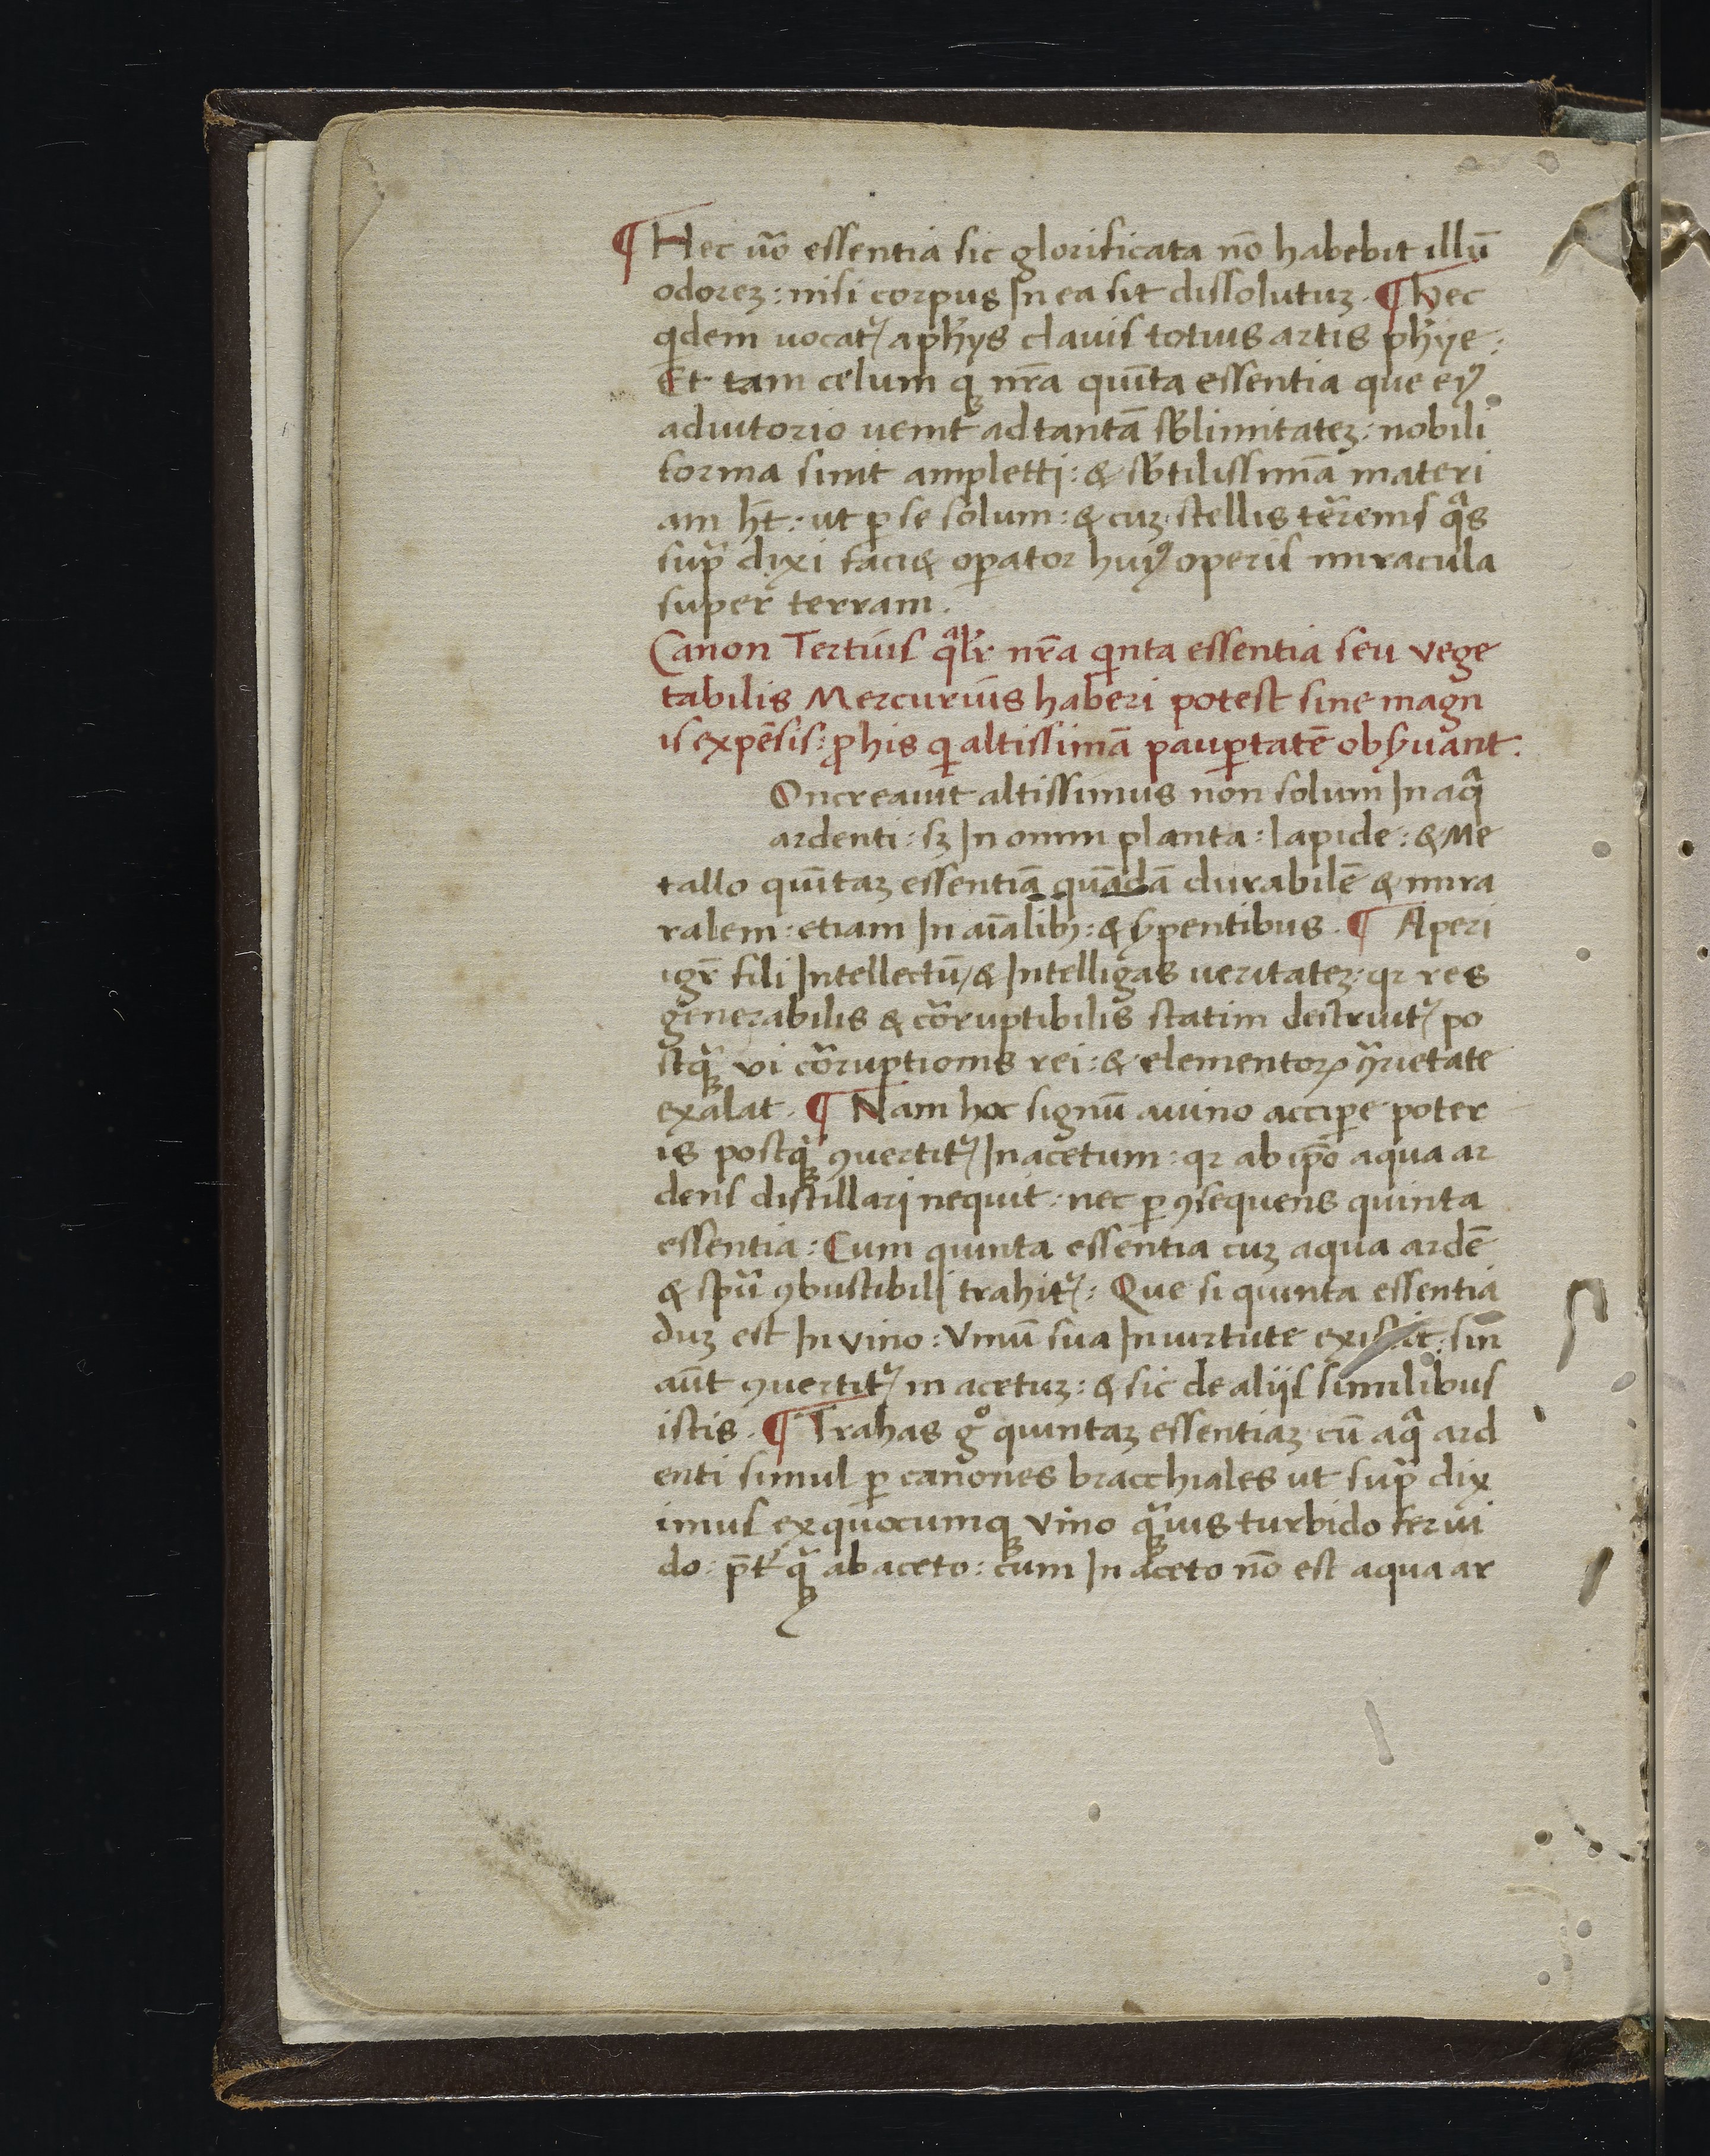 ¶ Hec uo᷉ essentia sic glorificata nō habebit illū
odorez : nisi corpus In ea sit dissolutuz . ¶ Hec
qdem uocat᷑ a phys clauis totius artis phye :
Et tam celum qꝫ nr̄a quīta essentia que eiꝰ
adiutorio uenit ad tantā sblimitatez : nobili
forma sinit ampletti : & sbtilissimā materi
am ht̄ : ut ꝑ se solum : & cuz stellis terrenis qᵃs
supᵃ dixi faci& oꝑator huiꝰ operis miracula
super terram .
Canon Tertius qᵃlr nr̄a qinta essentia seu vege
tabilis Mercurius haberi potest sine magn
is expēsis : ꝓ his qi altissimā pauꝑtatē obs̄uant .
Oncreauit altissimus non solum In aqᵃ
ardenti : sꝫ In omni planta : lapide : & Me
tallo quītaz essentiā quādā durabilē & mira
ralem : etiam In aīalibꝫ : & s̄pentibus . ¶ Aperi
igr̄ fili Intellectū / & Intelligas ueritatez : qꝛ res
generabilis & corruptibilis statim destruit᷑ po
stqᵃꝫ vi corruptionis rei : & elementoꝝ ꝯᵃrietate
exalat . ¶ Nam hoc signū a uino acciꝑe poter
is postqᵃꝫ ꝯuertit᷑ In acetum : qꝛ ab ip̄o aqua ar
dens distillari nequit : nec ꝑ ꝯsequens quinta
essentia : Cum quinta essentia cuz aqua ardē
& spū ꝯbustibili trahit᷑ : Que si quinta essentia
duz est In vino : Vinū sua In uirtute existit : sin
aūt ꝯuertit᷑ in acetuz : & sic de aliis similibus
istis . ¶ Trahas gͦ quintaz essentiaz cū aqᵃ ard
enti simul ꝑ canones bracchiales ut supᵃ dix
imus ex quocumqꝫ vino qᵃꝫuis turbido ferui
do : p̄t᷑qᵃꝫ ab aceto : cum In aceto nō est aqua ar